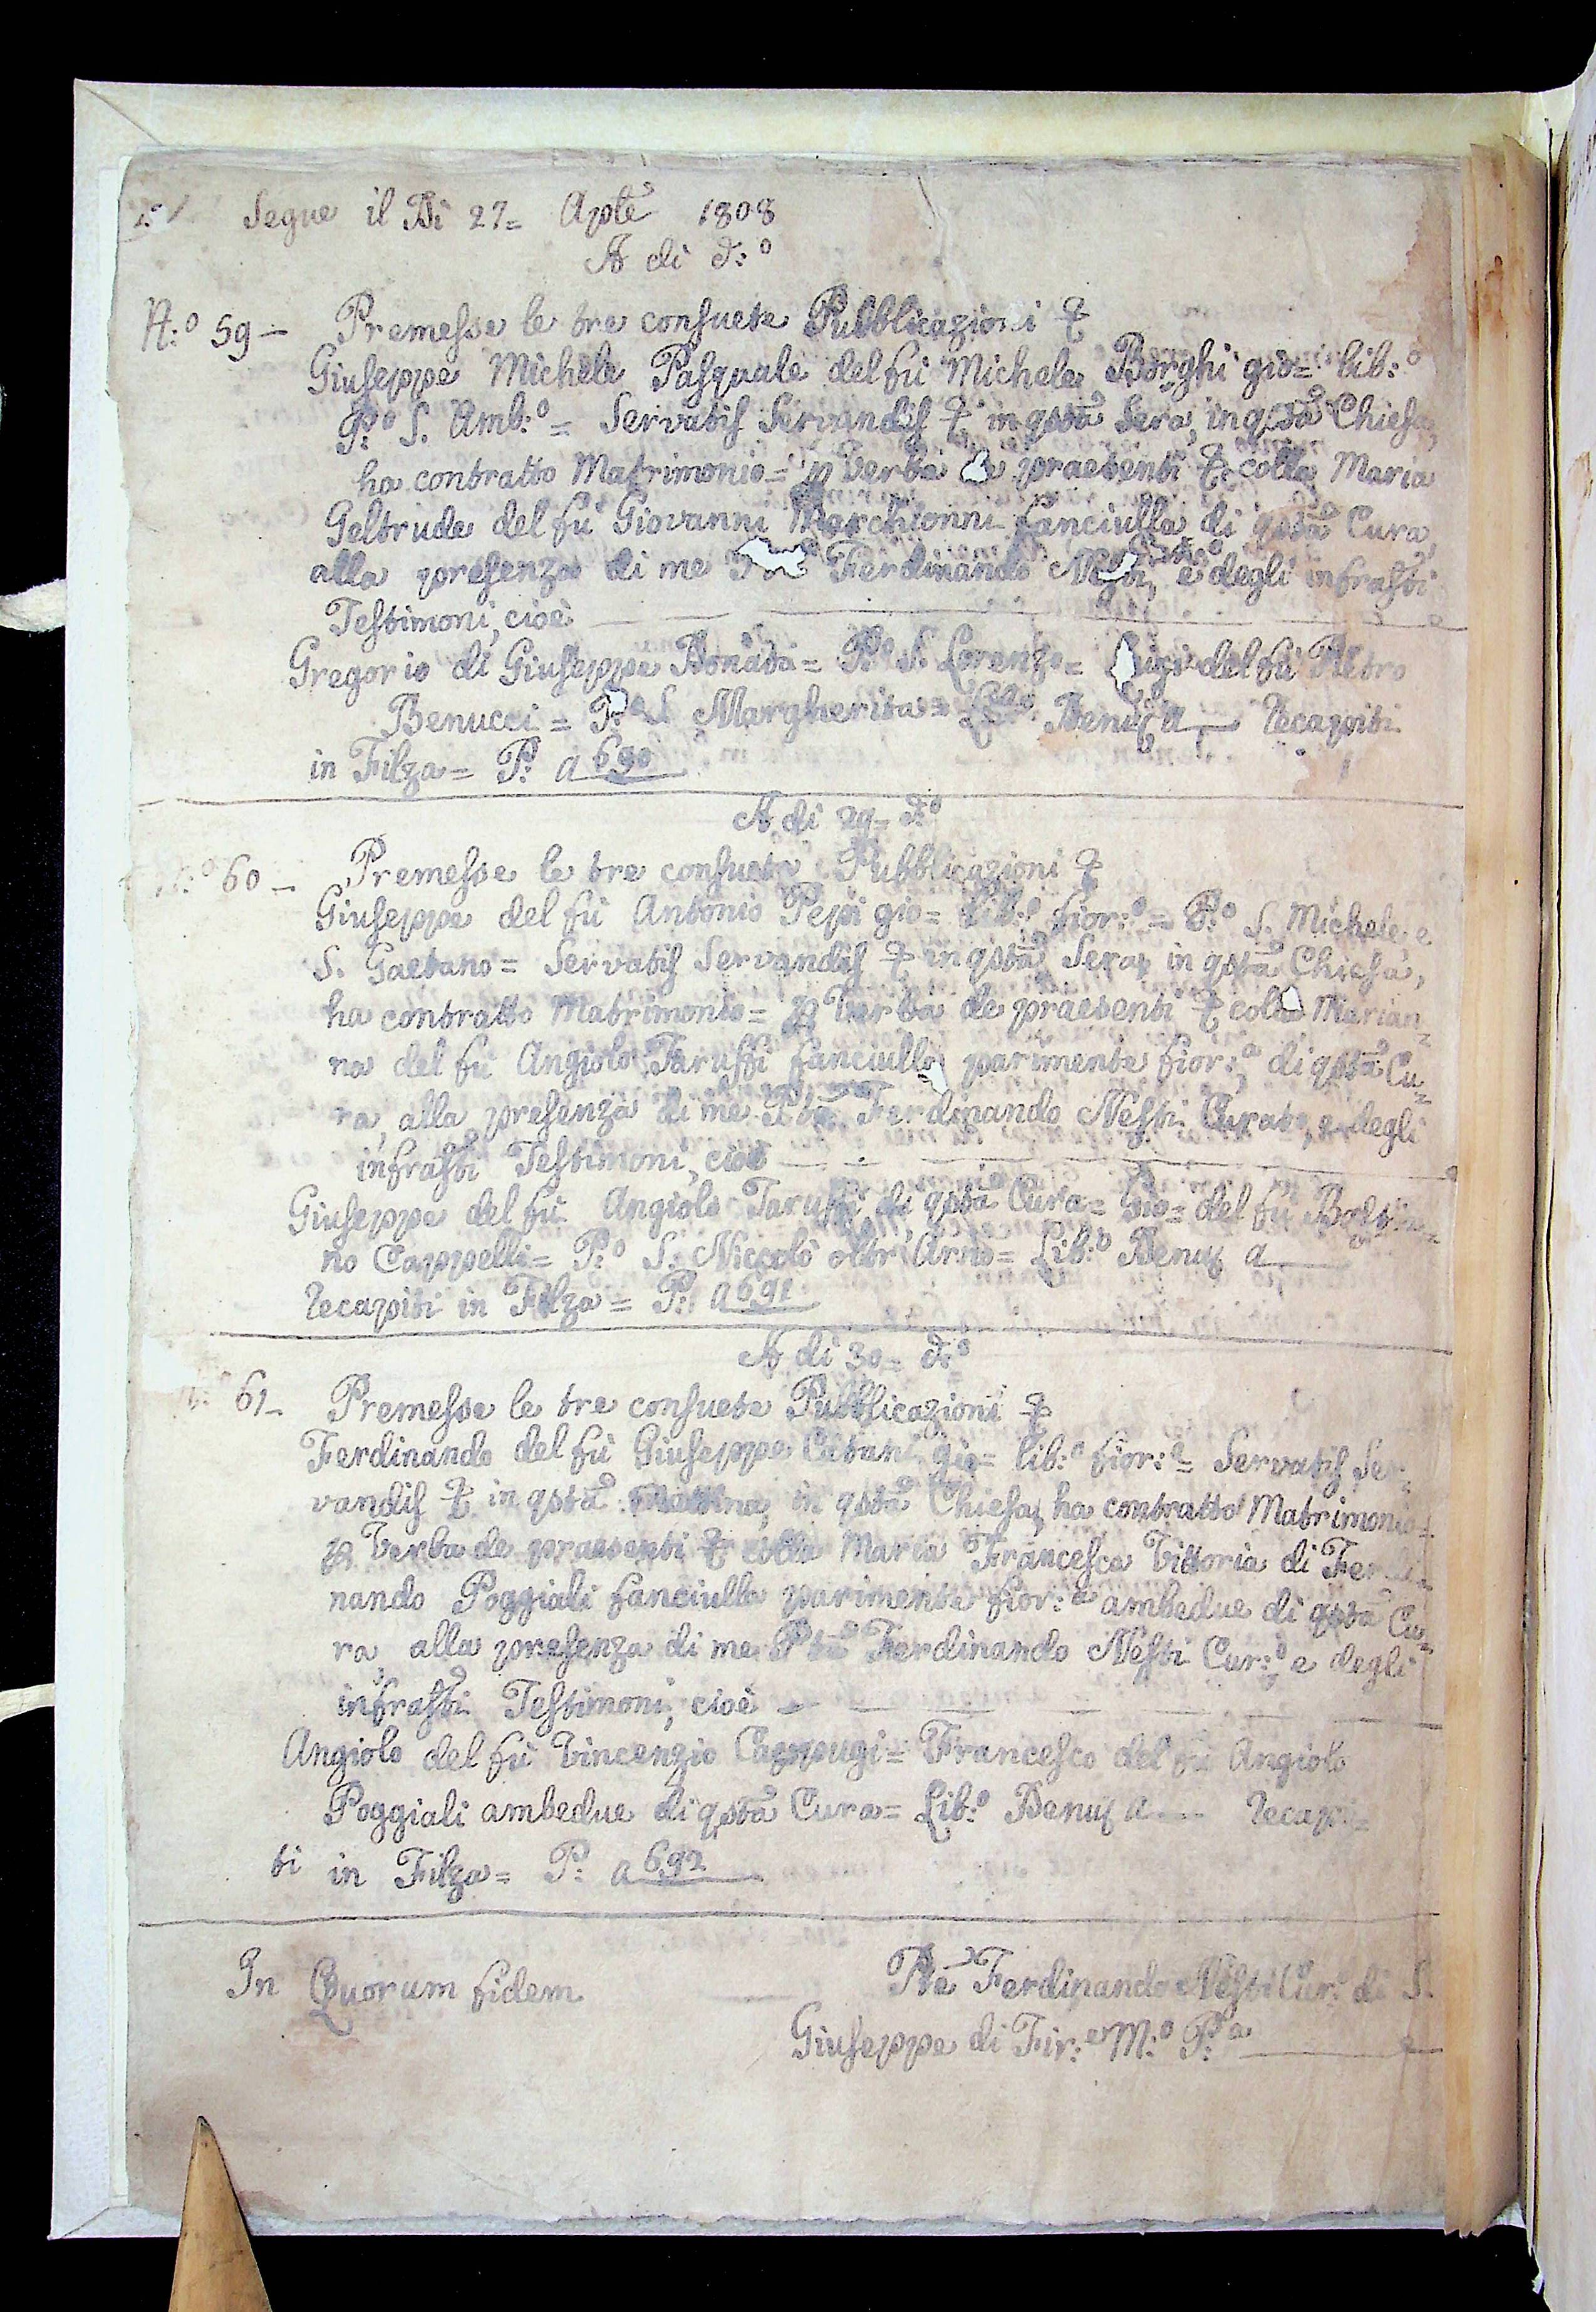 Segue il Di 27= Aple 1808
A di d:o
N:o 59 — Premesse le tre consuete Pubblicazioni &
Giuseppe Michele Pasquale del fù Michele Borghi gio= lib:o
P:o S. Amb:o = Servatis Servandis & in qsta Sera, in qsta Chiesa,
ha contratto Matrimonio= p Verba de praesenti & colla Maria
Geltrude del fù Giovanni Marchionni fanciulla di qsta Cura,
alla presenza di me Ferdinando e degli infrasti
Testimoni, cioè
Gregorio di Giuseppe Donata= P:o S. Lorenzo= Luigi del fù Pietro
Benucci = P:o S. Margherita= Lib:o Benuf a Recapiti
in Filza= P: a 690
A di 29= d:o
N:o 60 — Premesse le tre consuete Pubblicazioni &
Giuseppe del fù Antonio Pepi gio= lib:o fior:o = P:o S. Michele e
S. Gaetano= Servatis Servandis & in qsta Sera, in qsta Chiesa,
ha contratto Matrimonio= p Verba de praesenti & colla Marian=
na del fù Angiolo Taruffi fanciulla parimente fior:a, di qsta Cu=
ra, alla presenza di me Pte Ferdinando Nesti Curato, e degli
infrasti Testimoni, cioè
Giuseppe del fù Angiolo Taruffi di qsta Cura= Gio= del fù
no Cappelli= P:o S. Niccolò oltr'Arno= Lib:o Benuf a
Recapiti in Filza= P: a 691
A di 30= d:o
N:o 61 — Premesse le tre consuete Pubblicazioni &
Ferdinando del fù Giuseppe Catani gio= lib:o fior:o= Servatis Ser=
vandis & in qsta Mattina, in qsta Chiesa, ha contratto Matrimonio=
p Verba de praesenti & colla Maria Francesca Vittoria di Ferdi=
nando Poggiali fanciulla parimente fior:a ambedue di qsta Cu=
ra, alla presenza di me Pte Ferdinando Nesti Cur:o e degli
infrasti Testimoni, cioè
Angiolo del fù Vincenzio Cappugi= Francesco del fù Angiolo
Poggiali ambedue di qsta Cura= Lib:o Benuf a Recapi=
ti in Filza= P: a 692
In Quorum fidem Pte Ferdinando Nesti Cur:o di S.
Giuseppe di Fir:e M:o P:a